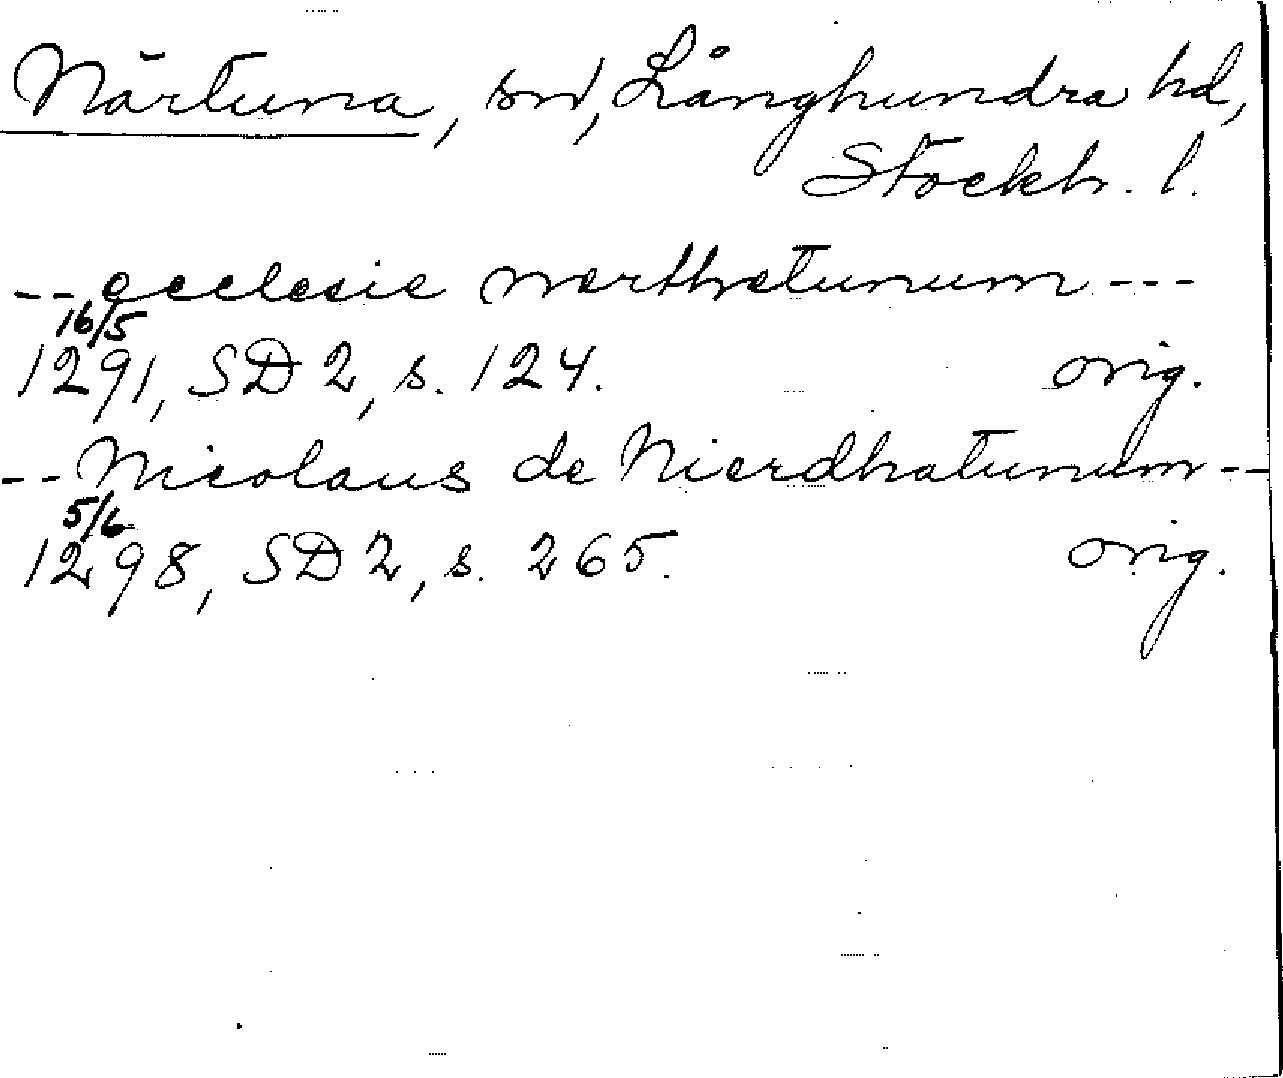 Närtuna, sn, Långhundra hd,
Stockh. l.
-- ecclesie nærthatunum ---
16/5
1291, SD 2, s. 124. orig.
-- Nicolaus de Nierdhatunum --
5/6
1298, SD 2, s. 265. orig.